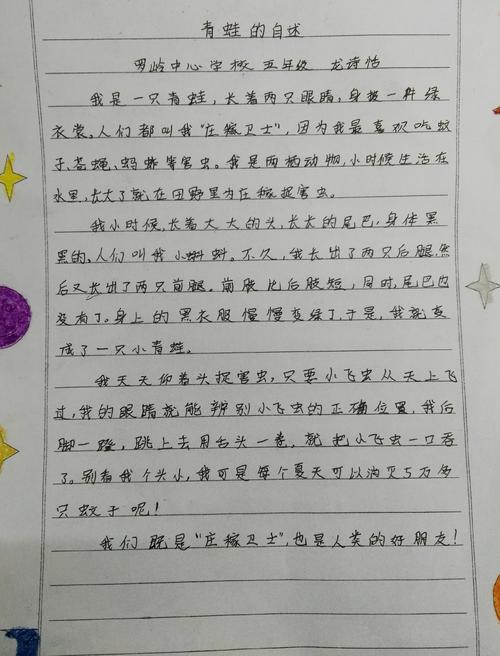 青蛙的自述
罗岭中心学校 五年级 龙诗怡
我是一只青蛙，长着两只眼睛，身披一件绿
衣裳。人们都叫我“庄稼卫士”，因为我最喜欢吃蚊
子、苍蝇、蚂蚱等害虫。我是两栖动物，小时候生活在
水里，长大了就在田野里为庄稼捉害虫。
我小时候，长着大大的头，长长的尾巴，身体黑
黑的，人们叫我小蝌蚪。不久，我长出了两只后腿，然
后又长出了两只前腿。前肢比后肢短，同时，尾巴也
没有了。身上的黑衣服慢慢变绿了，于是，我就变
成了一只小青蛙。
我天天仰着头捉害虫，只要小飞虫从天上飞
过，我的眼睛就能辨别小飞虫的正确位置，我后
脚一蹬，跳上去用舌头一卷，就把小飞虫一口吞
了。别看我个头小，我可是每个夏天可以消灭5万多
只蚊子呢！
我们既是“庄稼卫士”，也是人类的好朋友！